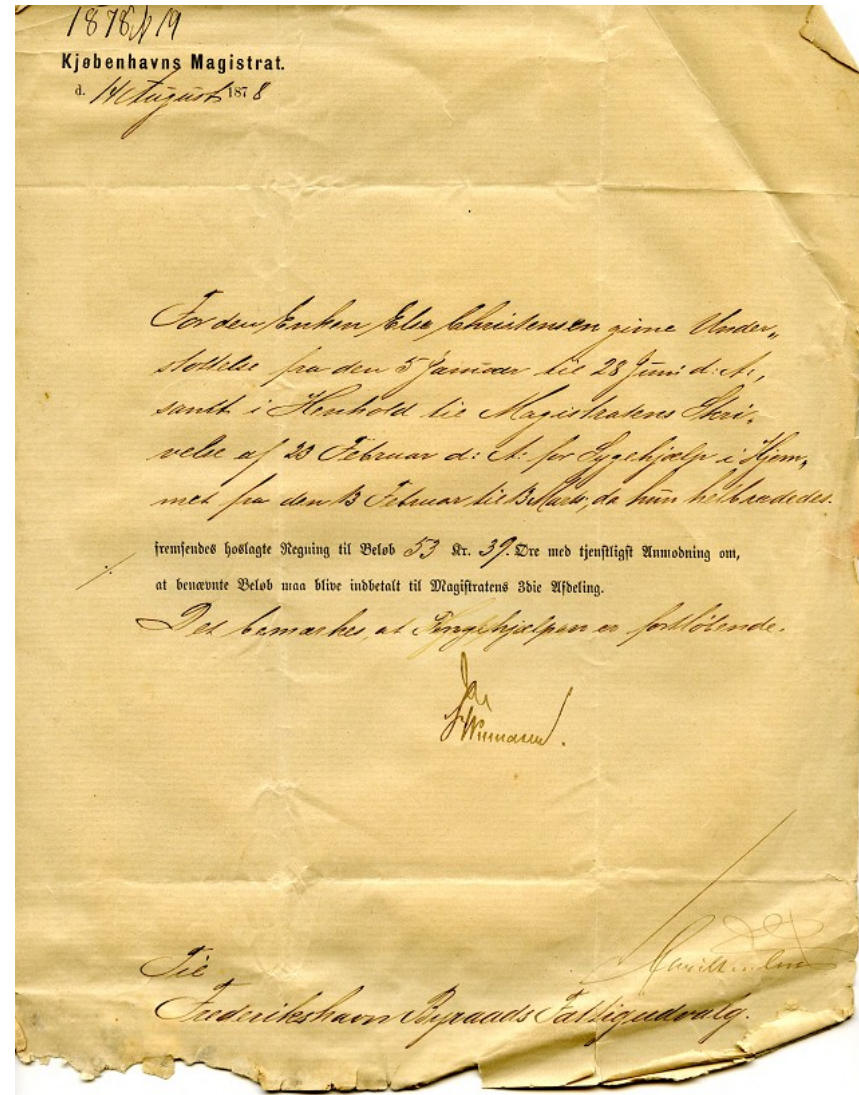 1878
Kjøbenhavns Magistrat.
d. 14 August 1878
For den Enken Else Christensen givne Under„
støttelse fra den 5 Januar til 28 Juni d: A:,
samt i Henhold til Magistratens Skri„
velse af 23 Februar d: A: for Sygehjælp i Hjem„
met fra den 13 Februar til 13 Marts, da hun helbrededes.
fremsendes hoslagte Regning til Beløb 53 Kr. 39. Øre med tjenstligst Anmodning om,
./.
at benævnte Beløb maa blive indbetalt til Magistratens 3die Afdeling.
Det bemærkes, at Syngehjælpen er fortløbende.
Til
Frederikshavn Byraads Fattigudvalg.